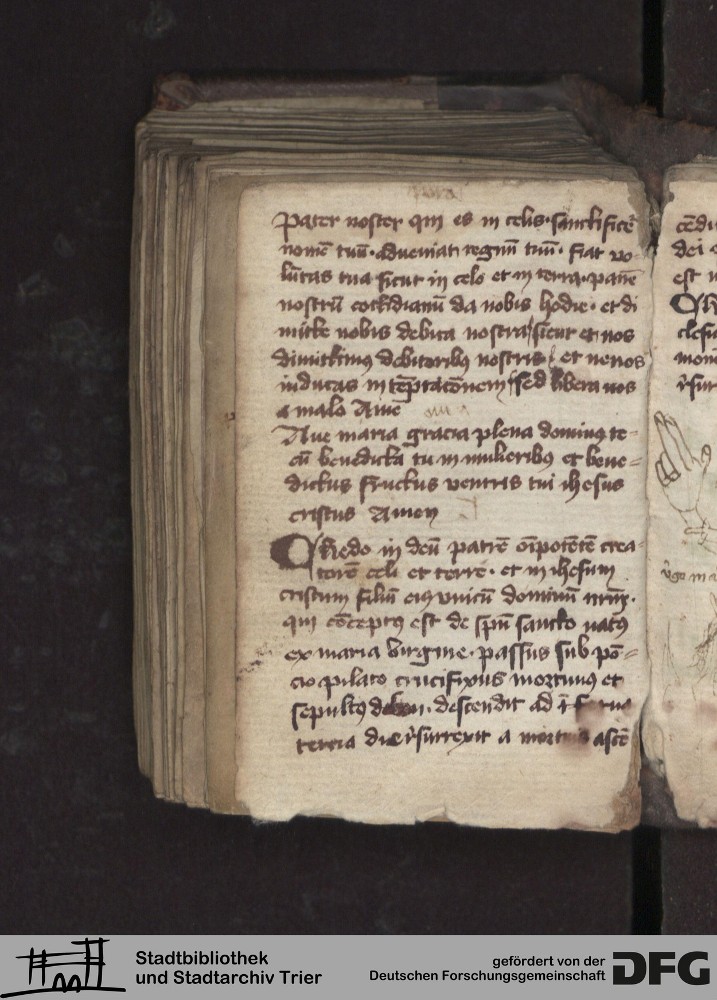 pater noster qui es in celis · sanctificet̄
nomē tuū · adveniat regnū tuū · fiat vo-
lūtas tua sicut in celo et in terra · panē
nostrū cottidianū da nobis hodie · et di
mitte nobis debita nostra sicut et nos
dimittimus debitoribus nostris et ne nos
inducas in tēptacōnem sed libera nos
a malo Amē
Aue maria gracia plena dominus te-
cū benedicta tu in mulieribus et bene-
dictus fructus ventris tui ihesus
cristus Amen
Credo in deū patrē oīpotētē crea
torē celi et terre · et in ihesum
cristum filiū eius unicū dominū nrm̄ ·
qui cōceptus est de spū sancto natus
ex maria virgine · passus sub pō-
cio pilato crucifixus mortuus et
sepultus descendit ad īferna
tercia die resurrexit a mortuis ascē
cēdit
dei
est
clesia
Stadtbibliothek
und Stadtarchiv Trier
gefördert von der
Deutschen Forschungsgemeinschaft
DFG